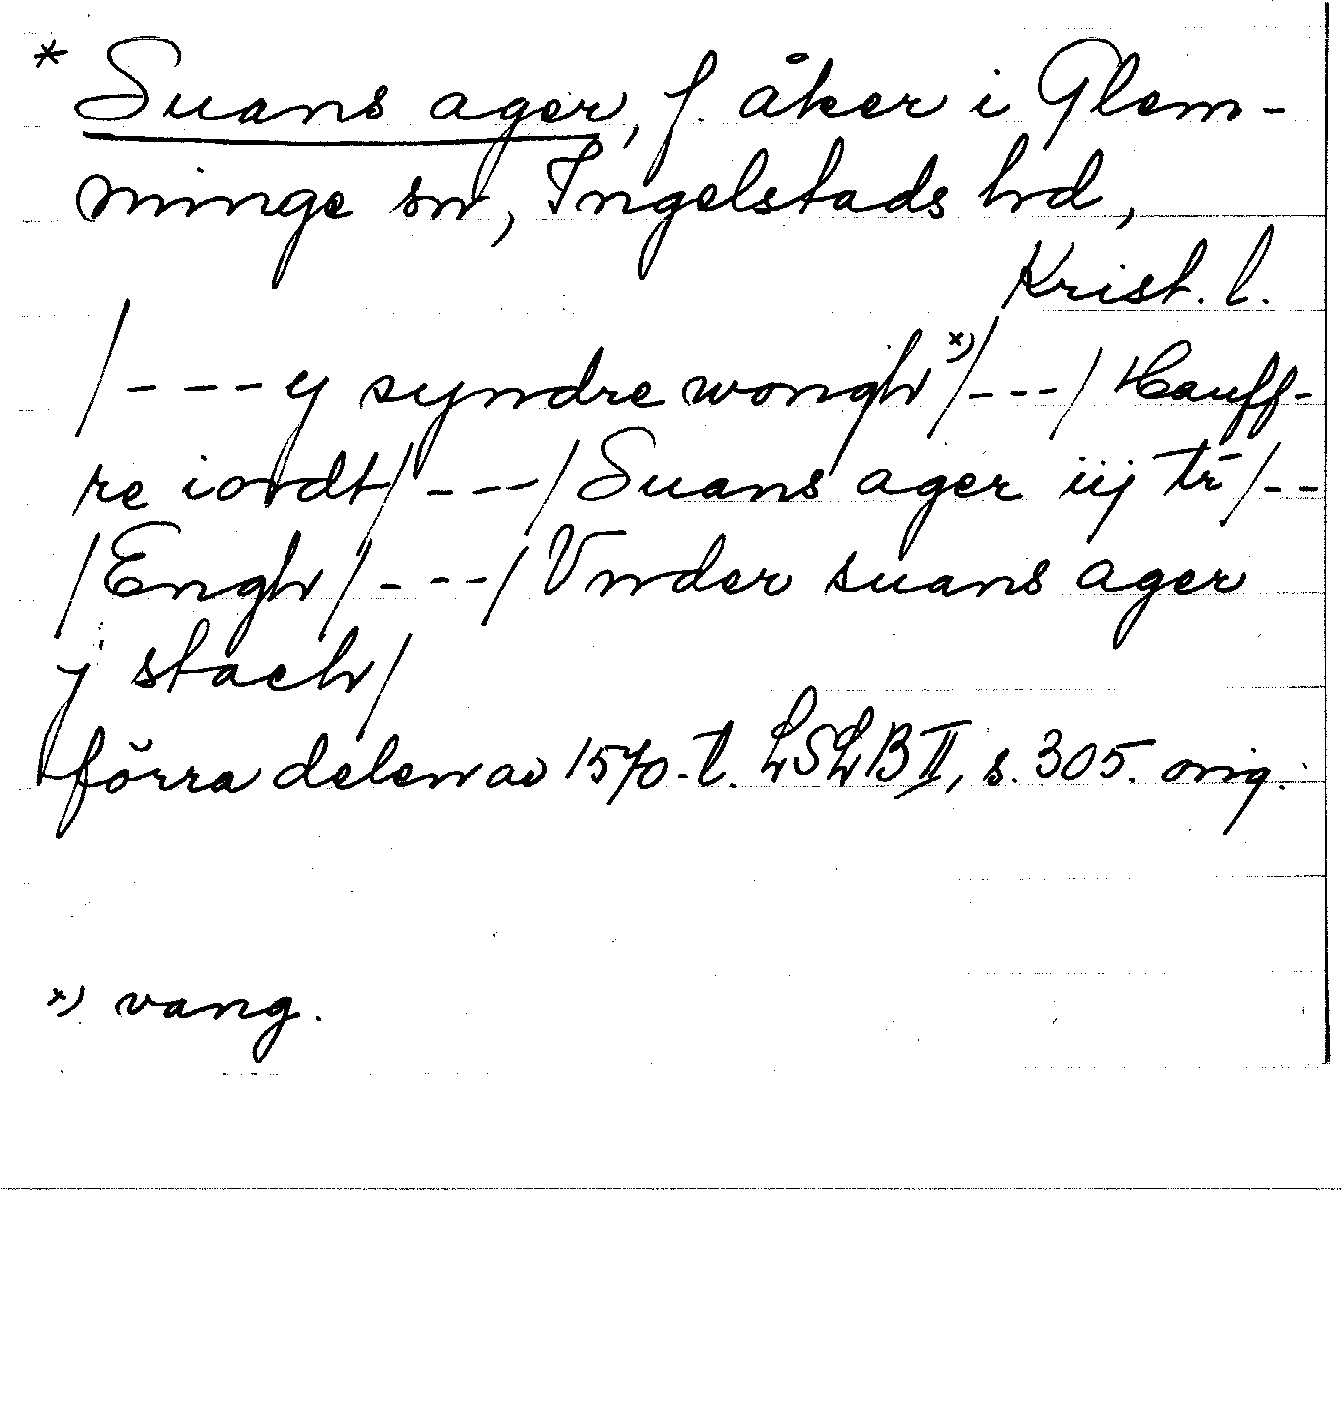 * Suans ager, f. åker i Glem-
minge sn, Ingelstads hd,
Krist. l.
/---y syndre wongh x)/---/ Hauff-
re iordt/---/Suans ager iij tr̄/--
/Engh/---/Vnder suans ager
j stach/
förra delen av 1570-t. LSLB II, s. 305. orig.
x) vang.